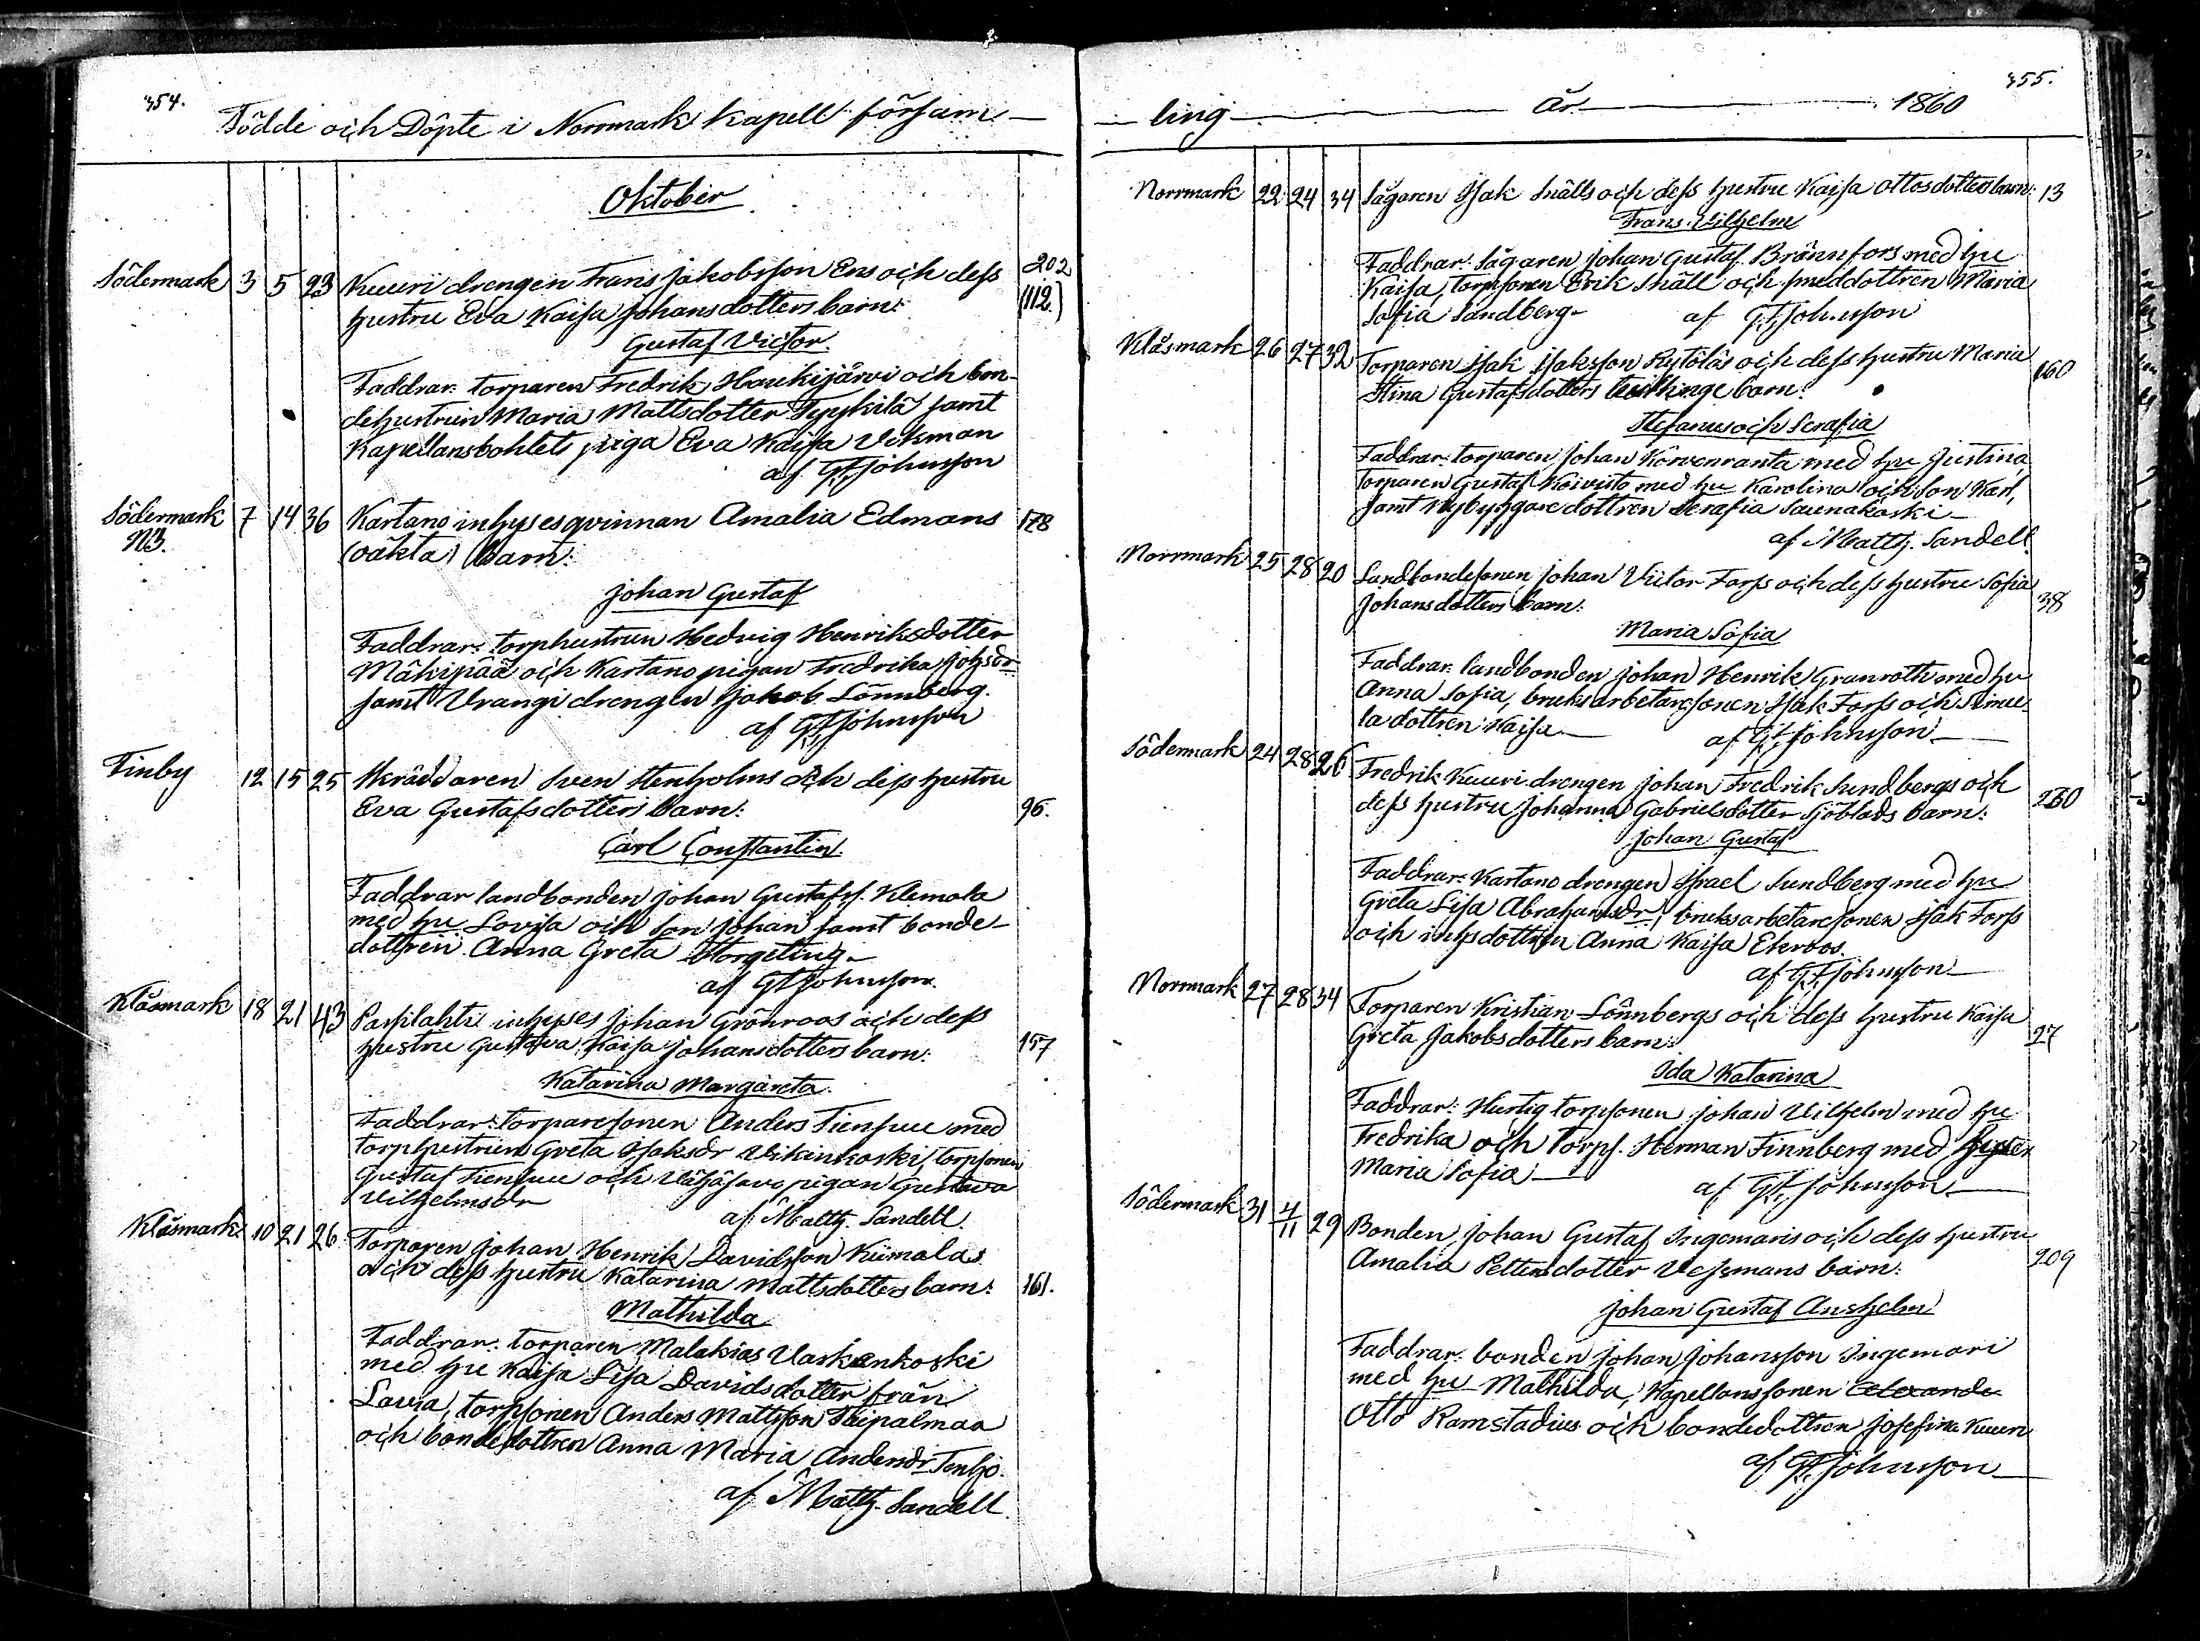 354.
Födde och Döpte i Norrmark Kapell församl-
Oktober
Södermark 3 5 23 Kuuri drengen Frans Jakobsson Ens och dess 202
hustru Eva Kaisa Johansdotters barn: (112.)
Gustaf Victor.
Faddrar: torparen Fredrik Haukijärvi och bon-
dehustrun Maria Mattsdotter Tyykilä samt
Kapellansbohlets piga Eva Kaisa Vikman
af G.F. Johnsson
Södermark 7 14 36 Kartano inhyses qvinnan Amalia Edmans 178
N3. (oäkta) barn:
Johan Gustaf
Faddrar: torphustrun Hedvig Henriksdotter
Mäkipää och Kartano pigan Fredrika Johsdr
samt Vrangi drengen Jakob Lönnberg.
af G.F. Johnsson
Finby 12 15 25 Skräddaren Sven Stenholms och dess hustru
Eva Gustafsdotters barn: 96.
Carl Constantin.
Faddrar landbonden Johan Gustafss. Klemola
med hu Lovisa och son Johan samt bonde-
dottren Anna Greta Storgeting-
af G.F. Johnsson.
Klåsmark 18 21 43 Paspilahti inhyses Johan Grönroos och dess
hustru Gustava Kaisa Johansdotters barn: 157
Katarina Margareta.
Faddrar: torparesonen Anders Tiensuu med
torphustrun Greta Isaksdr Vikinkoski, torpsonen
Gustaf Tiensuu och Vähäsavo pigan Gustava
Vilhelmsdr af Matth. Sandell.
Klåsmark 10 21 26 Torparen Johan Henrik Davidsson Kiimalas
och dess hustru Katarina Mattsdotters barn: 161.
Mathilda
Faddrar: torparen Malakias Vaskenkoski
med hu Kaisa Lisa Davidsdotter från
Lavia, torpsonen Anders Mattsson Taipalmaa
och bondedottren Anna Maria Andersdr Tenho.
af Matth. Sandell.
355.
ling År 1860
Norrmark 22 24 34 Sågaren Isak Snälls och dess hustru Kaisa Ottosdotters barn: 13
Frans Vilhelm
Faddrar: sågaren Johan Gustaf Brännfors med hu
Kaisa, torpsonen Erik Snäll och smeddottren Maria
Sofia Sandberg- af G.F. Johnsson
Klåsmark 26 27 32 Torparen Isak Isaksson Rytöläs och dess hustru Maria 160
Stina Gustafsdotters tvillinge barn:
Stefanus och Serafia
Faddrar: torparen Johan Korvenranta med hu Justina,
torparen Gustaf Koivisto med hu Karolina och son Karl,
samt nybyggare dottren Serafia Saunakoski-
af Matth. Sandell.
Norrmark 25 28 20 Landbondesonen Johan Victor Forss och dess hustru Sofia
Johansdotters barn: 38
Maria Sofia
Faddrar: landbonden Johan Henrik Granroth med hu
Anna Sofia, bruksarbetaresonen Isak Forss och Simu-
la dottren Kaisa af G.F. Johnsson
Södermark 24 28 26 Fredrik Kuuri drengen Johan Fredrik Sundbergs och
dess hustru Johanna Gabrielsdotter Sjöblads barn: 260
Johan Gustaf
Faddrar: Kartano drengen Israel Sundberg med hu
Greta Lisa Abrahamsdr, bruksarbetaresonen Isak Forss
och inhysdottren Anna Kaisa Ekroos.
af G.F. Johnsson
Norrmark 27 28 34 Torparen Kristian Lönnbergs och dess hustru Kaisa
Greta Jakobsdotters barn: 27
Ida Katarina
Faddrar: Hurtig torpsonen Johan Vilhelm med hu
Fredrika och torps. Herman Finnberg med
Maria Sofia af G.F. Johnsson
Södermark 31 4/11 29 Bonden Johan Gustaf Ingemaris och dess hustru
Amalia Pettersdotter Vessmans barn: 209
Johan Gustaf Anshelm
Faddrar: bonden Johan Johansson Ingemari
med hu Mathilda, Kapellanssonen
Otto Ramstadius och bondedottren Josefina Kuuri
af G.F. Johnsson